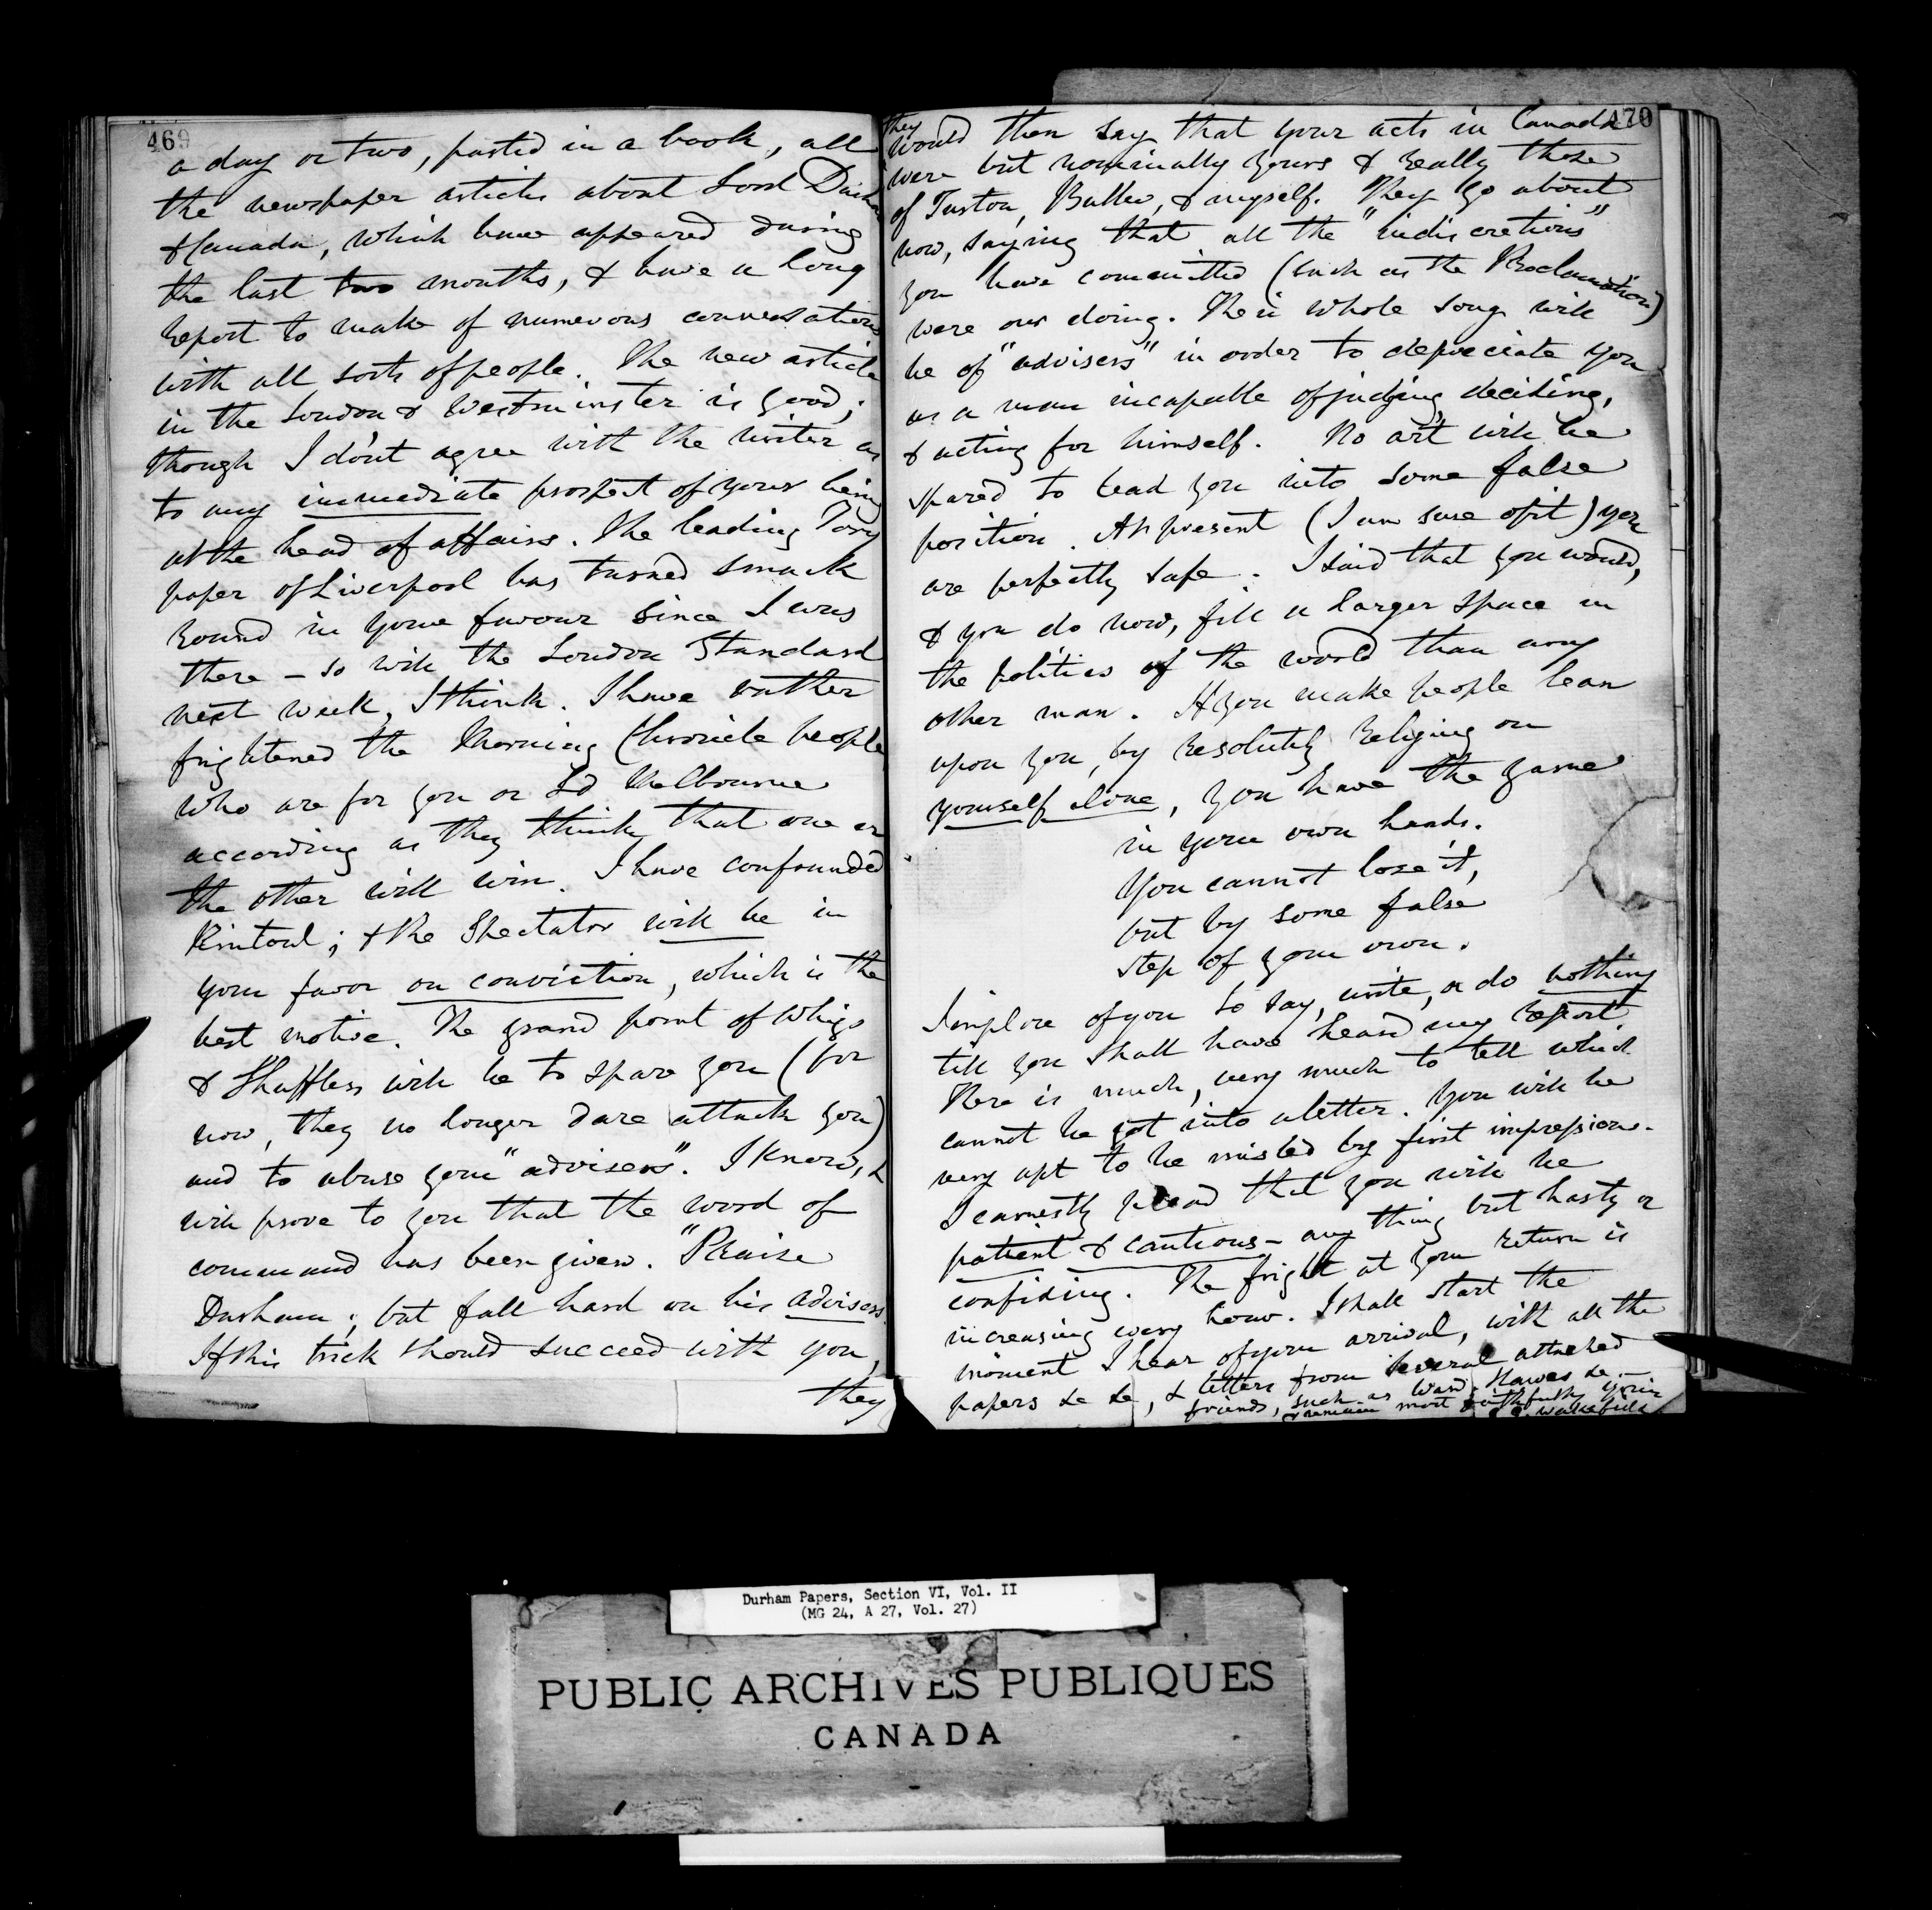 469
a day or two, pasted in a book, all
the newspaper articles about Lord Durham
& Canada, which have appeared during
the last two months, & have a long
report to make of numerous conversations
with all sorts of people. The new article
in the London & Westminster is good;
though I don't agree with the writer as
to any immediate prospect of your being
at the head of affairs. The leading Tory
paper of Liverpool has turned smack
round in your favour since I was
there – so will the London Standard
next week, I think. I have rather
frightened the Morning Chronicle people,
who are for you or Ld Melbourne
according as they think that one or
the other will win. I have confounded
Rintoul; & the Spectator will be in
your favor on conviction, which is the
best motive. The grand point of Whigs
& Shufflers will be to spare you (for
now, they no longer dare attack you)
and to abuse your "advisers". I know, &
will prove to you that the word of
command has been given. "Praise
Durham; but fall hard on his advisers.
If this trick should succeed with you,
they
470
they
would then say that your acts in Canada
were but nominally yours & really those
of Turton, Buller, & myself. They go about
now, saying that all the "indiscretions"
you have committed (such as the Proclamation)
were our doing. Their whole song will
be of "advisers" in order to depreciate you
as a man incapable of judging, deciding,
& acting for himself. No art will be
spared to lead you into some false
position. At present (I am sure of it) you
are perfectly safe. I said that you would,
& you do now, fill a larger space in
the politics of the world than any
other man. If you make people lean
upon you, by resolutely relying on
yourself alone, you have the game
in your own hands.
You cannot lose it,
but by some false
step of your own.
I implore of you to say, write, or do nothing
till you shall have heard my report
There is much, very much to tell which
cannot be got into a letter. You will be
very apt to be misled by first impressions.
I earnestly plead that you will be
patient & cautious – any thing but hasty or
confiding. The fright at your return is
increasing every hour. I shall start the
moment I hear of your arrival, with all the
papers &c &c, & letters from several attached
friends, such as Ward, Hawes &c –
& remain most faithfully yours
E. G. Wakefield
Durham Papers, Section VI, Vol. II
(MG 24, A 27, Vol. 27)
PUBLIC ARCHIVES PUBLIQUES
CANADA